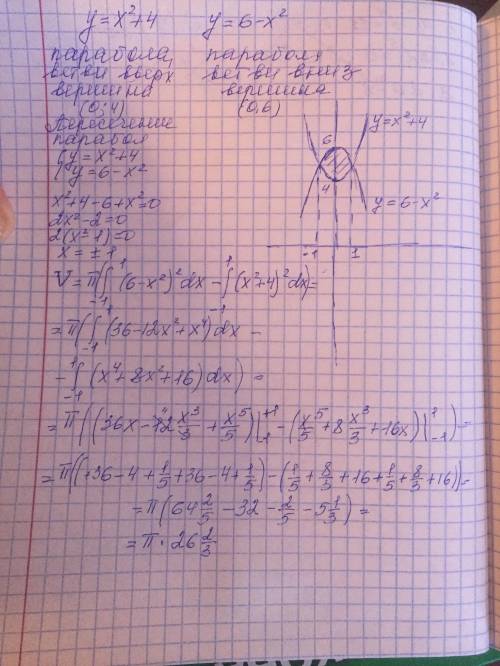 y = x²+4     y = 6-x²
парабола,     парабола,
ветви вверх     ветви вниз
вершина     вершина
(0; 4)     (0,6)
Пересечение
парабол
{ y = x²+4
{ y = 6-x²
x²+4-6+x²=0
2x²-2=0
2(x²-1)=0
x = ±1
y=x²+4
6
4
y=6-x²
-1     1
V = π(∫₋₁¹ (6-x²)² dx - ∫₋₁¹ (x²+4)² dx) =
= π(∫₋₁¹ (36-12x²+x⁴) dx -
- ∫₋₁¹ (x⁴+8x²+16) dx) =
= π((36x - 12 x³/3 + x⁵/5)|₋₁⁺¹ - (x⁵/5 + 8 x³/3 + 16x)|₋₁¹) =
= π((+36-4+1/5+36-4+1/5) - (1/5+8/3+16+1/5+8/3+16)) =
= π(64 2/5 - 32 - 2/5 - 5 1/3) =
= π · 26 2/3